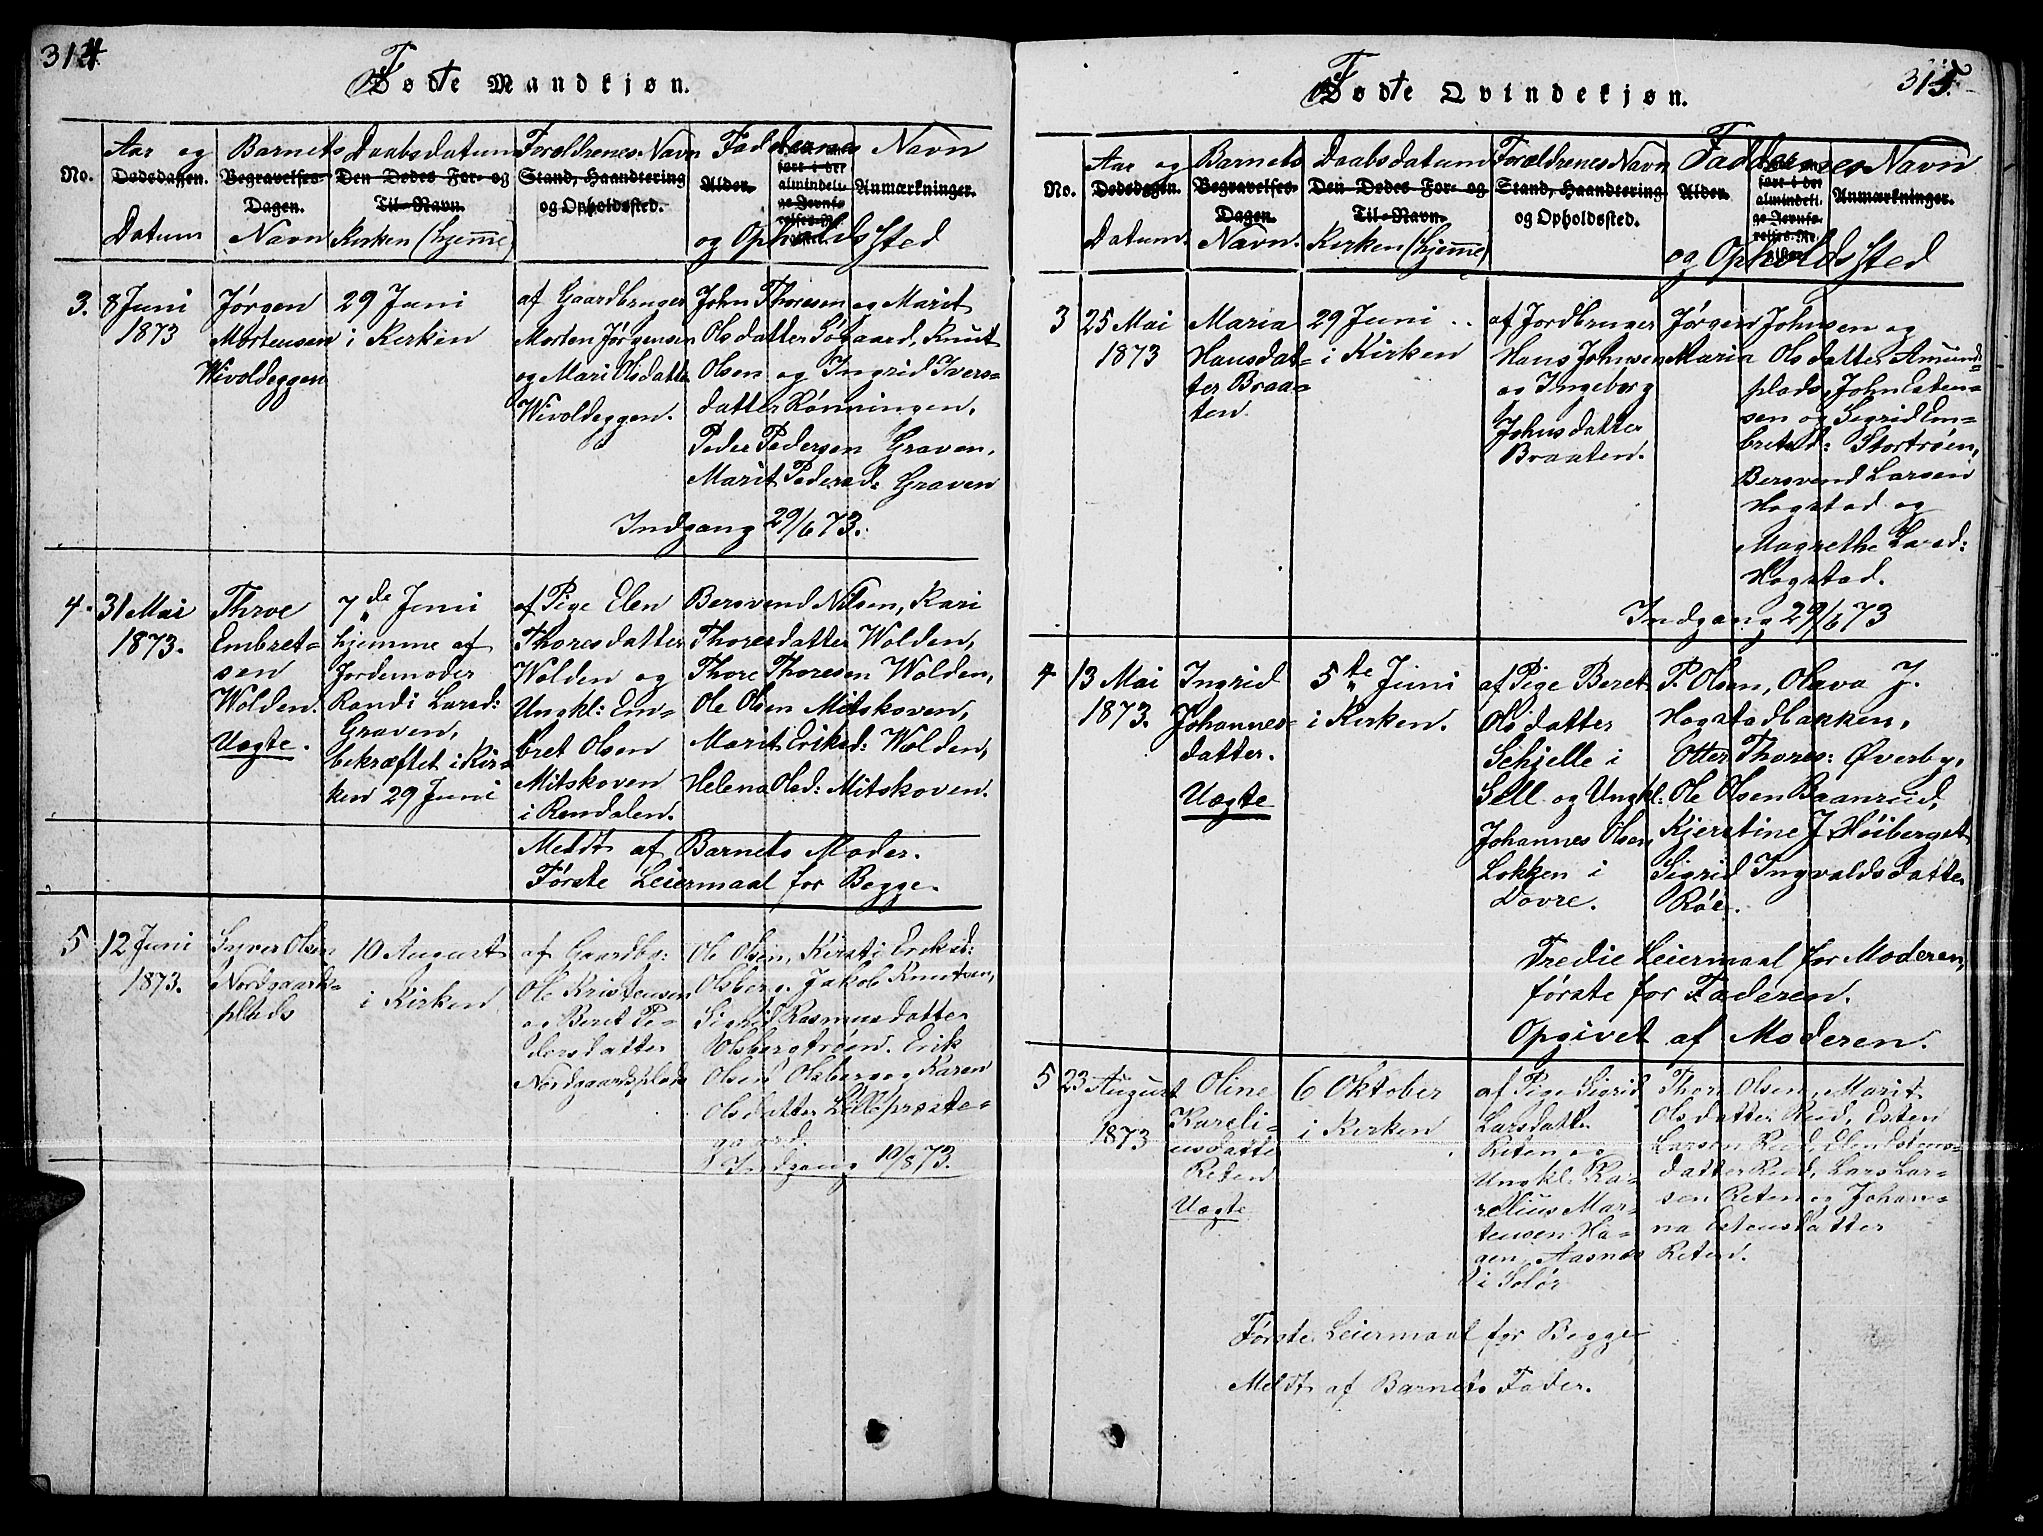 314
Fødte Mandkjøn.
No.
Aar og
Dødsdagen.
Datum
Barnets
Begravelses-
Dagen.
Navn
Daabsdatum
Den Dødes For- og
Til-Navn.
Kirken (hjemme)
Forældrenes Navn
Stand, Haandtering
og Opholdssted.
Faddernes Navn
Alder.
ført i det
almindeli-
ge Jevnfø-
relses-Re-
Anmærkninger.
og Opholds Sted
3.
8 Juni
1873
Jørgen
Mortensen
Wivoldeggen
29 Juni
i Kirken
af Gaardbruger
Morten Jørgensen
og Mari Olsdatter
Wivoldeggen.
John Thoresen og Marit
Olsdatter Søgaard, Knut
Olsen og Ingrid Ivers-
datter Rønningen,
Peder Pedersen Graven,
Marit Pedersd: Graven
Indgang 29/6 73.
4.
31 Mai
1873.
Thrve
Embret-
sen
Wolden.
Uægte.
7de Juni
hjemme af
Jordemoder
Randi Larsd:
Graven,
bekræftet i Kir-
ken 29 Juni
af Pige Elen
Thoresdatter
Wolden og
Ungkl: Em-
bret Olsen
Mitskoven
i Rendalen.
Bersvend Nilsen, Kari
Thoresdatter Wolden,
Thore Thoresen Wolden,
Ole Olsen Mitskoven,
Marit Eriksd: Wolden,
Helena Olsd: Mitskoven.
Meldt af Barnets Moder.
Første Leiermaal for Begge.
5
12 Juni
1873.
Syver Olsen
Nordgaards-
plads
10 August
i Kirken
af Gaardbg:
Ole Kristensen
og Beret Pe-
dersdatter
Nordgaardsplads
Ole Olsen, Kersti Eriksd:
Olsberg. Jakob Knutsen,
Sigrid Rasmusdatter
Olsbergtrøen. Erik
Olsen Olsberg og Karen
Olsdatter Lillepræste-
gaard.
Indgang 10/8 73.
315.
Fødte Qvindekjøn.
No.
Aar og
Dødsdagen.
Datum.
Barnets
Begravelses-
Dagen.
Navn.
Daabsdatum
Den Dødes For- og
Til-Navn.
Kirken (hjemme)
Forældrenes Navn
Stand, Haandtering
og Opholdssted.
Faddernes Navn
Alder.
ført i det
almindeli-
ge Jevnfø-
relses-Re-
Anmærkninger.
og Opholds Sted
3
25 Mai
1873
Maria
Hansdat-
ter Braa-
ten.
29 Juni
i Kirken
af Jordbruger
Hans Johnsen
og Ingeborg
Johnsdatter
Braaten.
Jørgen Johnsen og
Maria Olsdatter Amunds-
plads, John Esten-
sen og Sigrid Em-
bretsd: Stortrøen,
Bersvend Larsen
Hogstad og
Magnethe Larsd:
Hogstad.
Indgang 29/6 73
4
13 Mai
1873.
Ingrid
Johannes-
datter.
Uægte
5te Juni
i Kirken.
af Pige Beret
Olsdatter
Schjelle i
Sell og Ungkl:
Johannes Olsen
Løkken i
Dovre.
P. Olsen, Olava J.
Hogstadbakken,
Otter Thores: Øverby,
Ole Olsen Baanrud,
Kjerstine J Høiberget
Sigrid Ingvaldsdatter
Røe.
Tredie Leiermaal for Moderen,
første for Faderen.
Opgivet af Moderen.
5
23 August
1873
Oline
Kareli-
usdatter
Reten
Uægte
6 Oktober
i Kirken
af Pige Sigrid
Larsdatter
Reten og
Ungkl. Ka-
relius Mor-
tensen Ha-
gen, Aasnes
i Solør
Thore Olsen, Marit
Olsdatter Reed, Esten
Larsen Reed, Elen Estens-
datter Reed, Lars Lar-
sen Reten og Johan-
na Estensdatter
Reten.
Første Leiermaal for Begge
Meldt af Barnets Fader.